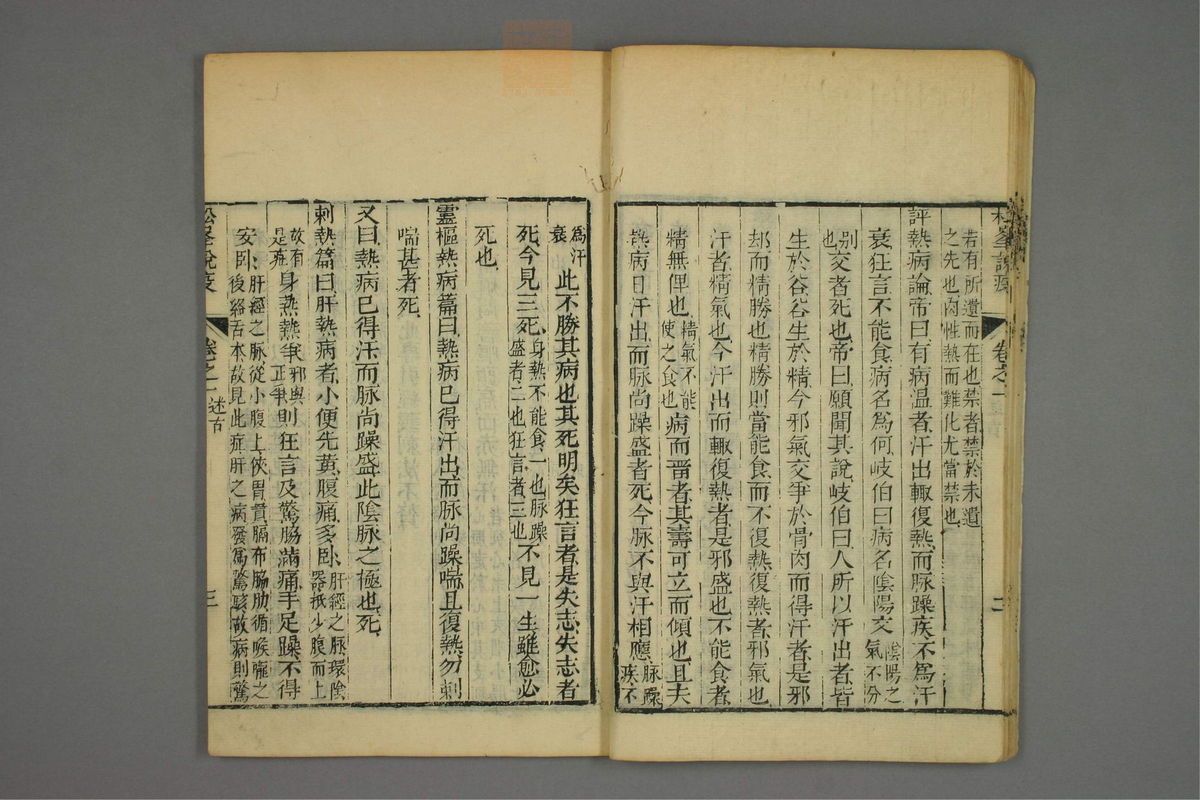 松峯說疫 卷之一 二
若有所遺而在也禁者禁於未遺
之先也肉性熱而難化尤當禁也
評熱病論帝曰有病温者汗出輒復熱而脉躁疾不爲汗
衰狂言不能食病名爲何岐伯曰病名陰陽交陰陽之
氣不分
别
也交者死也帝曰願聞其說岐伯曰人所以汗出者皆
生於谷谷生於精今邪氣交爭於骨肉而得汗者是邪
却而精勝也精勝則當能食而不復熱復熱者邪氣也
汗者精氣也今汗出而輒復熱者是邪盛也不能食者
精無俾也精氣不能
使之食也病而畱者其壽可立而傾也且夫
熱病曰汗出而脉尚躁盛者死今脉不與汗相應脉躁
疾不
爲汗
衰此不勝其病也其死明矣狂言者是失志失志者
死今見三死身熱不能食一也脉躁
盛者二也狂言者三也不見一生雖愈必
死也
靈樞熱病篇曰熱病已得汗出而脉尚躁喘且復熱勿刺
喘甚者死
又曰熱病已得汗而脉尚躁盛此陰脉之極也死
刺熱篇曰肝熱病者小便先黄腹痛多卧肝經之脉環陰
器抵少腹而上
故有
是症身熱熱爭邪與
正爭則狂言及驚脇滿痛手足躁不得
安卧肝經之脉從小腹上俠胃貫膈布脇肋循喉嚨之
後絡舌本故見此症肝之病發爲驚駭故病則驚
松峯說疫 卷之一 述古 三